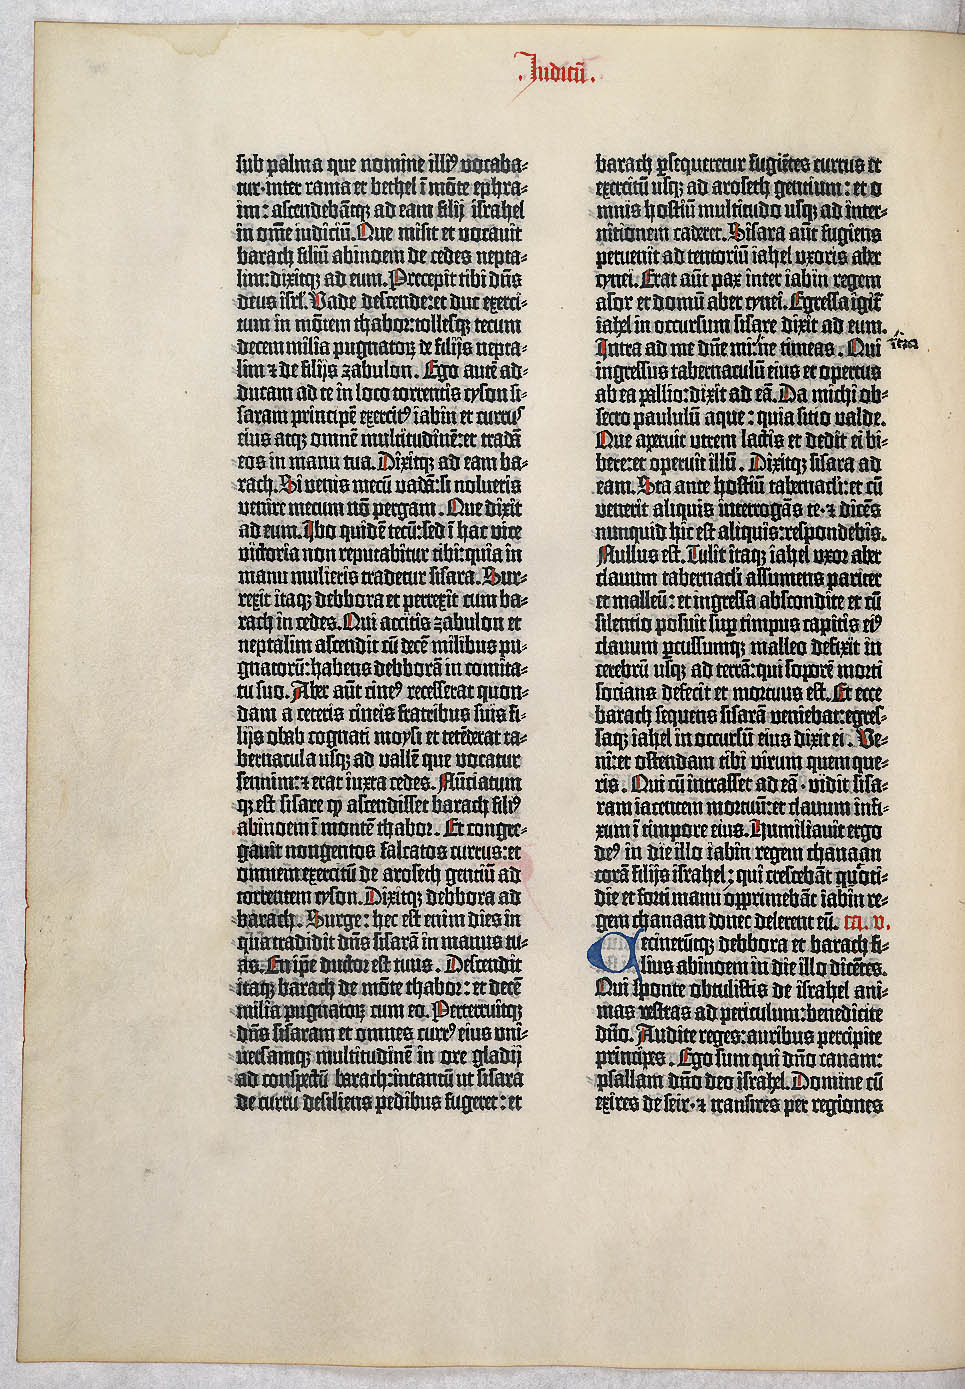 .Judicū.
sub palma que nomine illiꝰ vocaba-
tur·inter rama et bethel ī mōte ephra-
im: ascendebātqꝫ ad eam filij israhel
in om̄e iudiciū. Que misit et vocauit
barach filiū abinoem de cedes nepta-
lim: dixitqꝫ ad eum. Precepit tibi dn̄s
deus isrl̓. Vade descende: et duc exerci-
tum in mōtem thabor: tollesqꝫ tecum
decem milia pugnatoꝝ de filijs nepta-
lim ⁊ de filijs zabulon. Ego autē ad-
ducam ad te in loco torrentis cyson si-
saram principē exercitꝰ iabin et currus
eius atqꝫ omnē multitudinē: et tradā
eos in manu tua. Dixitqꝫ ad eam ba-
rach. Si venis mecū vadā: si nolueris
venire mecum nō pergam. Que dixit
ad eum. Ibo quidē tecū: sed ī hac vice
victoria non reputabitur tibi: quia in
manu mulieris tradetur sisara. Sur-
rexit itaqꝫ debbora et perrexit cum ba-
rach in cedes. Qui accitis zabulon et
neptalim ascendit cū decē milibus pu-
gnatorū: habens debborā in comita-
tu suo. Aber aūt cineꝰ recesserat quon-
dam a ceteris cineis fratribus suis fi-
lijs obab cognati moysi: et tetēderat ta-
bernacula usqꝫ ad vallē que vocatur
sennim: ⁊ erat iuxta cedes. Nūciatum
qꝫ est sisare ꝙ ascendisset barach filiꝰ
abinoem ī montē thabor. Et congre-
gauit nongentos falcatos currus: et
omnem exercitū de aroseth gentiū ad
torrentem cyson. Dixitqꝫ debbora ad
barach. Surge: hec est enim dies in
qua tradidit dn̄s sisarā in manus tu-
as. En ip̄e ductor est tuus. Descendit
itaqꝫ barach de mōte thabor: et decē
milia pugnatoꝝ cum eo. Perterruitqꝫ
dn̄s sisaram et omnes currꝰ eius uni-
uersamqꝫ multitudinē in ore gladij
ad conspectū barach: intantū ut sisara
de curru desiliens pedibus fugeret: et
barach ꝑsequeretur fugiētes currus et
exercitū usqꝫ ad aroseth gentium: et o
mnis hostiū multitudo usqꝫ ad inter-
nitionem caderet. Sisara aūt fugiens
peruenit ad tentoriū iahel vxoris aber
cynei. Erat aūt pax inter iabin regem
asor et domū aber cynei. Egressa igit̄
iahel in occursum sisare dixit ad eum.
Intra ad me dn̄e mi: ne timeas. Qui
īt̄ra
ingressus tabernaculū eius et opertus
ab ea pallio: dixit ad eā. Da michi ob-
secro paululū aque: quia sitio valde.
Que aperuit utrem lactis et dedit ei bi-
bere: et operuit illū. Dixitqꝫ sisara ad
eam. Sta ante hostiū tabernacli: et cū
venerit aliquis interrogās te· ⁊ dicēs
nunquid hic est aliquis: respondebis.
Nullus est. Tulit itaqꝫ iahel vxor aber
clauum tabernacli assumens pariter
et malleū: et ingressa abscondite et cū
silentio posuit suꝑ timpus capitis eiꝰ
clauum ꝑcussumqꝫ malleo defixit in
cerebrū usqꝫ ad terrā: qui soporē morti
socians defecit et mortuus est. Et ecce
barach sequens sisarā veniebat: egres-
saqꝫ iahel in occursū eius dixit ei. Ve-
ni: et ostendam tibi virum quem que-
ris. Qui cū intrasset ad eā · vidit sisa-
ram iacentem mortuū: et clauum infi-
xum ī timpore eius. Humiliauit ergo
deꝰ in die illo iabin regem chanaan
corā filijs israhel: qui crescebāt quoti-
die et forti manu opprimebāt iabin re-
gem chanaan donec delerent eū. ca. v.
Cecinerūtqꝫ debbora et barach fi-
lius abinoem in die illo dicētes.
Qui sponte obtulistis de israhel ani-
mas vestras ad periculum: benedicite
dn̄o. Audite reges: auribus percipite
principes. Ego sum qui dn̄o canam:
psallam dn̄o deo israhel. Domine cū
exires de seir· ⁊ transires per regiones